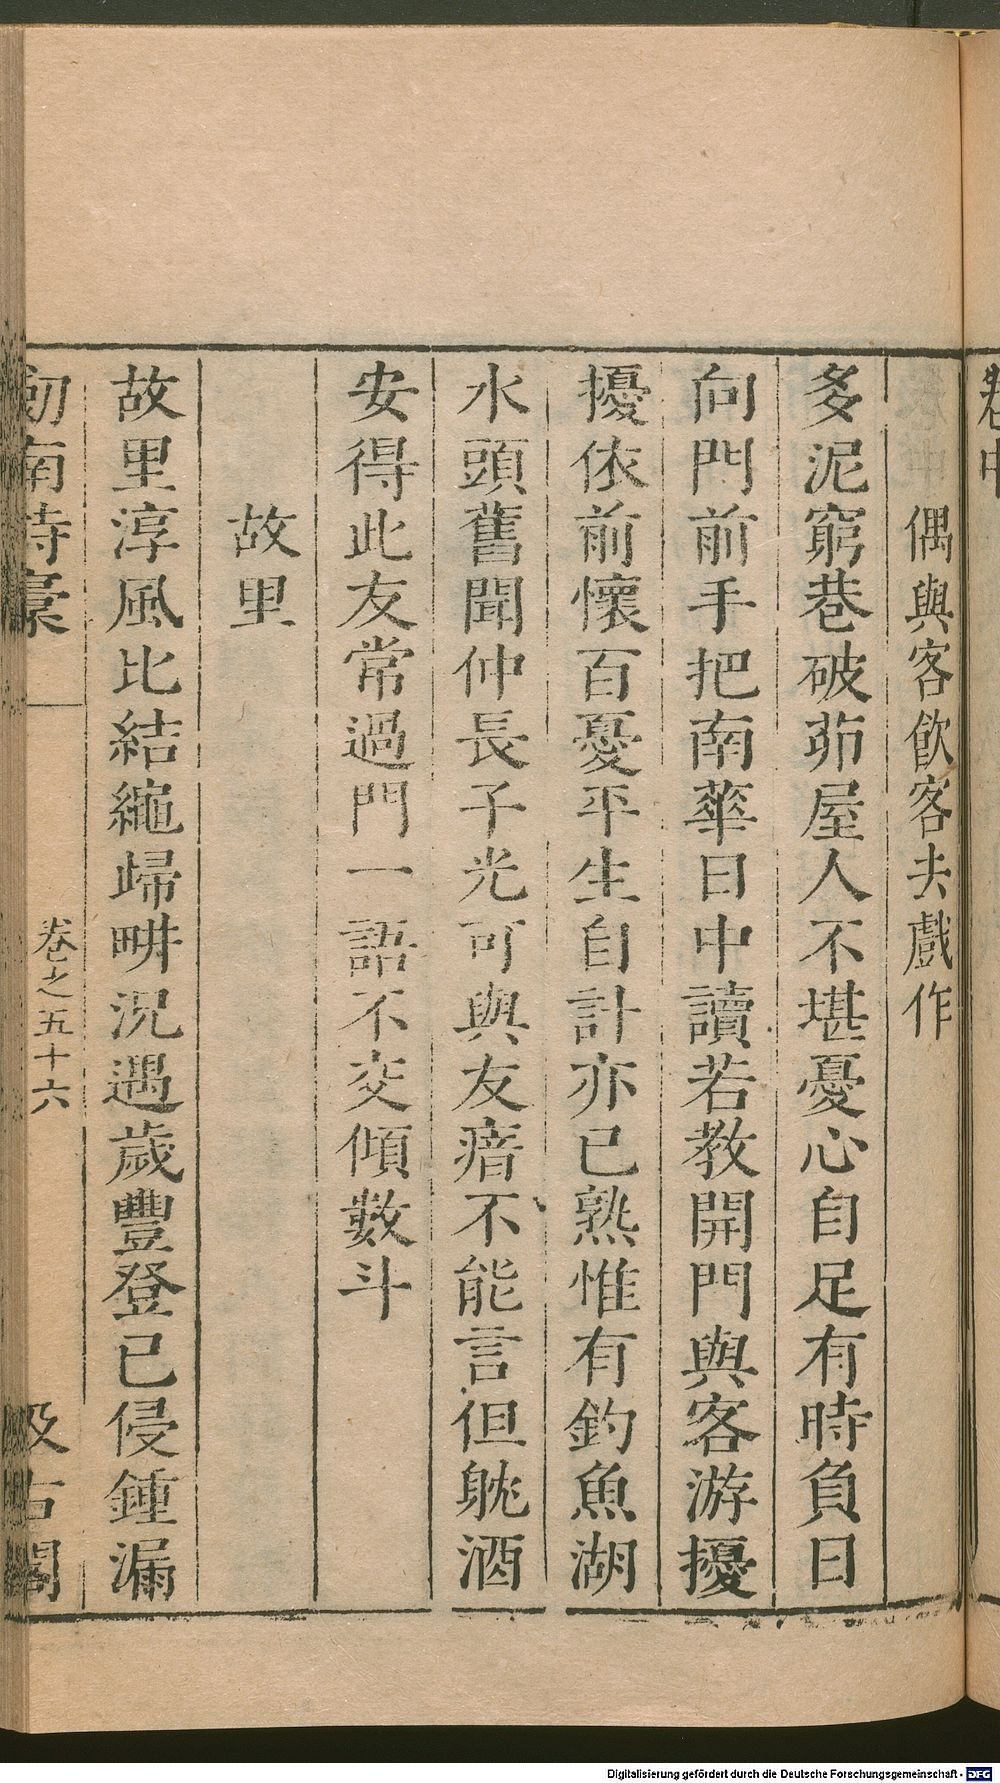 偶與客飲客去戲作
多泥窮巷破茆屋人不堪憂心自足有時負日
向門前手把南華日中讀若教開門與客游擾
擾依前懷百憂平生自計亦已熟惟有釣魚湖
水頭舊聞仲長子光可與友瘖不能言但躭酒
安得此友常過門一語不交傾數斗
故里
故里淳風比結繩歸畊況遇歲豐登已侵鍾漏
劎南詩稾
卷之五十六
汲古閣
Digitalisierung gefördert durch die Deutsche Forschungsgemeinschaft - DFG